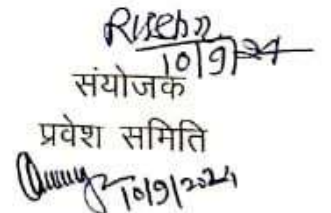 10/9/24
संयोजक
प्रवेश समिति
10/9/2024